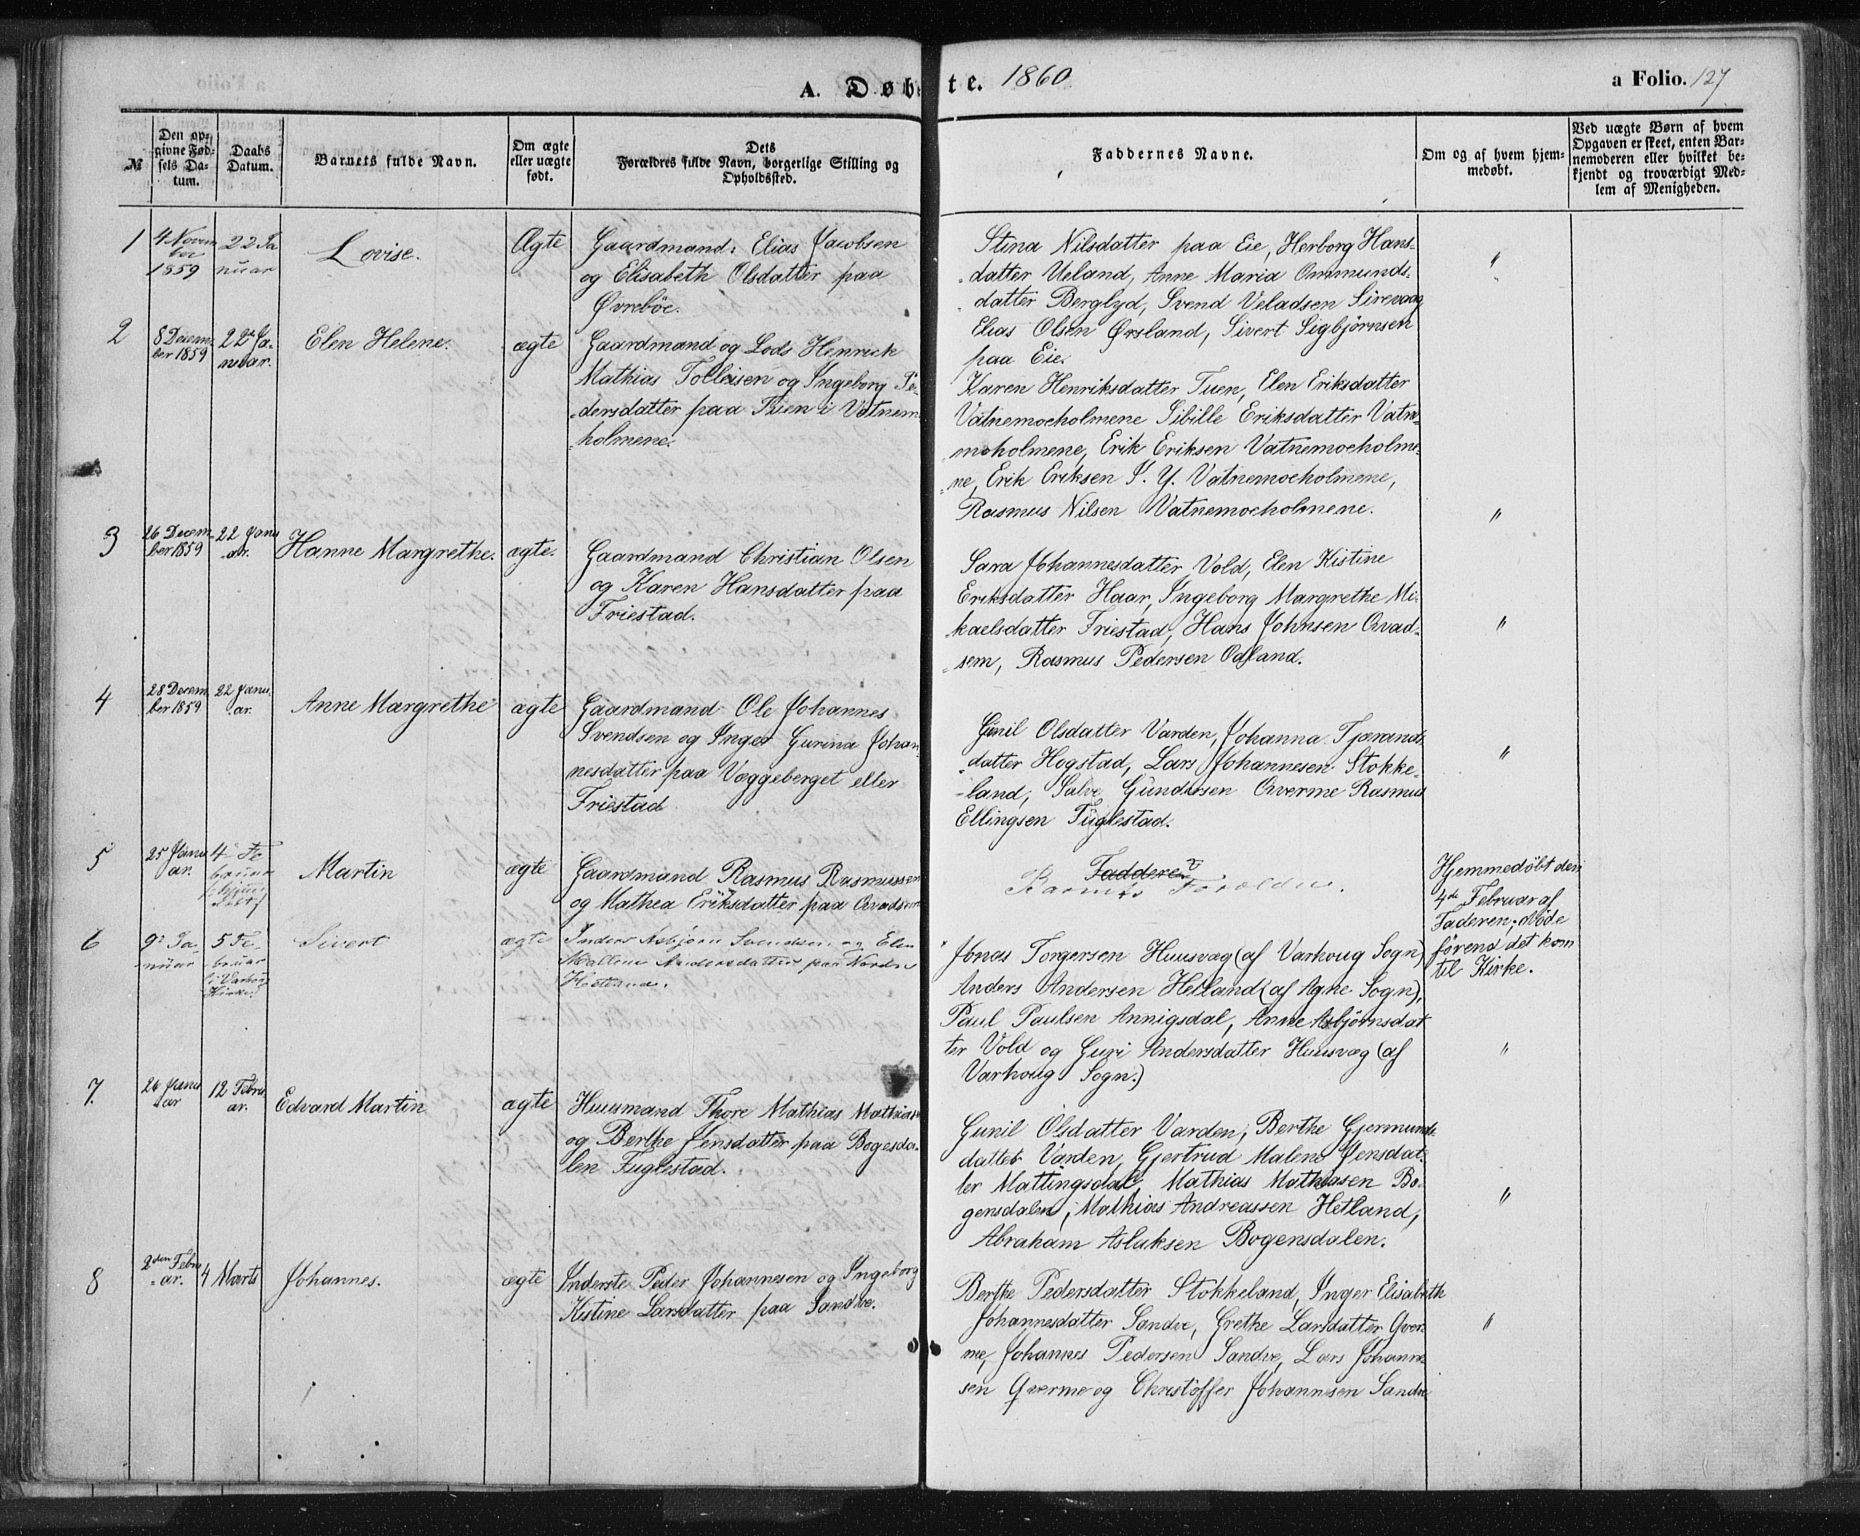 A. Døbte. 1860
a Folio. 127
№
Den op-
givne Fød-
sels Da-
tum.
Daabs
Datum.
Barnets fulde Navn.
Om ægte
eller uægte
født.
Dets
Forældres fulde Navn, borgerlige Stilling og
Opholdssted.
Faddernes Navne.
Om og af hvem hjem-
medøbt.
Ved uægte Børn af hvem
Opgaven er skeet, enten Bar-
nemoderen eller hvilket be-
kjendt og troværdigt Med-
lem af Menigheden.
1
4 Novem
ber
1859
22 Ja
nuar
Lovise.
Ægte
Gaardmand: Elias Jacobsen
og Elisabeth Olsdatter paa
Øvreböe.
Stina Nilsdatter paa Eie, Herborg Hans-
datter Ueland, Anne Maria Ommunds-
datter Berglyd, Svend Veladsen Sirevaag
Elias Olsen Ørsland, Sivert Sigbjørnsen
paa Eie.
"
2
8 Decem
ber 1859
22 Ja-
nuar.
Elen Helene.
ægte
Gaardmand og Lods Henrick
Mathias Tolleisen og Ingeborg Pe-
dersdatter paa Tuen i Vatnem
holmene.
Karen Henriksdatter Tuen, Elen Eriksdatter
Vatnemoeholmene Sibille Eriksdatter Vatne-
moholmene, Erik Eriksen Vatnemoeholme-
ne, Erik Eriksen S. Y. Vatnemoeholmene,
Rasmus Nilsen Vatnemoeholmene.
"
3
26 Decem-
ber 1859
22 Janu
ar.
Hanne Margrethe.
ægte.
Gaardmand Christian Olsen
og Karen Hansdatter paa
Friestad.
Sara Johannesdatter Vold, Elen Kistine
Eriksdatter Haar, Ingeborg Margrethe Mi-
kaelsdatter Friestad, Hans Johnsen Qvad-
sem, Rasmus Pedersen Odland.
"
4
28 Decem
ber 1859
22 Janu.
ar.
Anne Margrethe
ægte
Gaardmand Ole Johannes
Svendsen og Inger Gurina Johan
nesdatter paa Væggeberget eller
Friestad
Gunil Olsdatter Varden, Johanna Tjærands
datter Hogstad, Lars Johannesen Stokke-
land, Salve Gundersen Qverme Rasmus
Ellingsen Fuglestad.
"
5
25 Janu
ar.
4 Fe
bruar
Martin
ægte
Gaardmand Rasmus Rasmussen
og Mathea Eriksdatter paa Qvadsem
Faddere
Barnets Forældre.
Hjemmedöbt den
4de Februar af
Faderen; döde
förend det kom
til Kirke.
6
9 Ja
nuar
5 Fe
bruar
i Varhoug
Kirke
Sivert
ægte
Inders Asbjørn Svendsen og Elen
Mallene Andersdatter paa Nordre
Hetland.
Jonas Torgersen Huusvæg (af Varhoug Sogn)
Anders Andersen Hetland (af Agne Sogn),
Paul Paulsen Annigsdal, Anne Asbjørnsdat
ter Vold og Guri Andersdatter Huusvæg (af
Varhoug Sogn.)
"
7.
26 Janu
ar
12 Febru
ar.
Edvard Martin
ægte
Huusmand Thore Mathias Mathias-
og Berthe Jensdatter paa Bogesda-
len Fuglestad.
Gunil Olsdatter Varden, Berthe Gjermunds
datter Varden, Gjertrud Malene Jensdat-
ter Mattingsdal, Mathias Mathiasen Bo-
gensdalen, Mathias Andreassen Hetland,
Abraham Aslaksen Bogensdalen.
"
8
2den Febru
ar.
4 Marts
Johannes.
ægte
Inderste Peder Johannesen og Ingeborg
Kistine Larsdatter paa Sandve.
Berthe Pedersdatter Stokkeland, Inger Elisabeth
Johannesdatter Sandve, Grethe Larsdatter Qver-
me, Johannes Pedersen Sandve, Lars Johanne
sen Qverme og Christoffer Johannesen Sandve
"